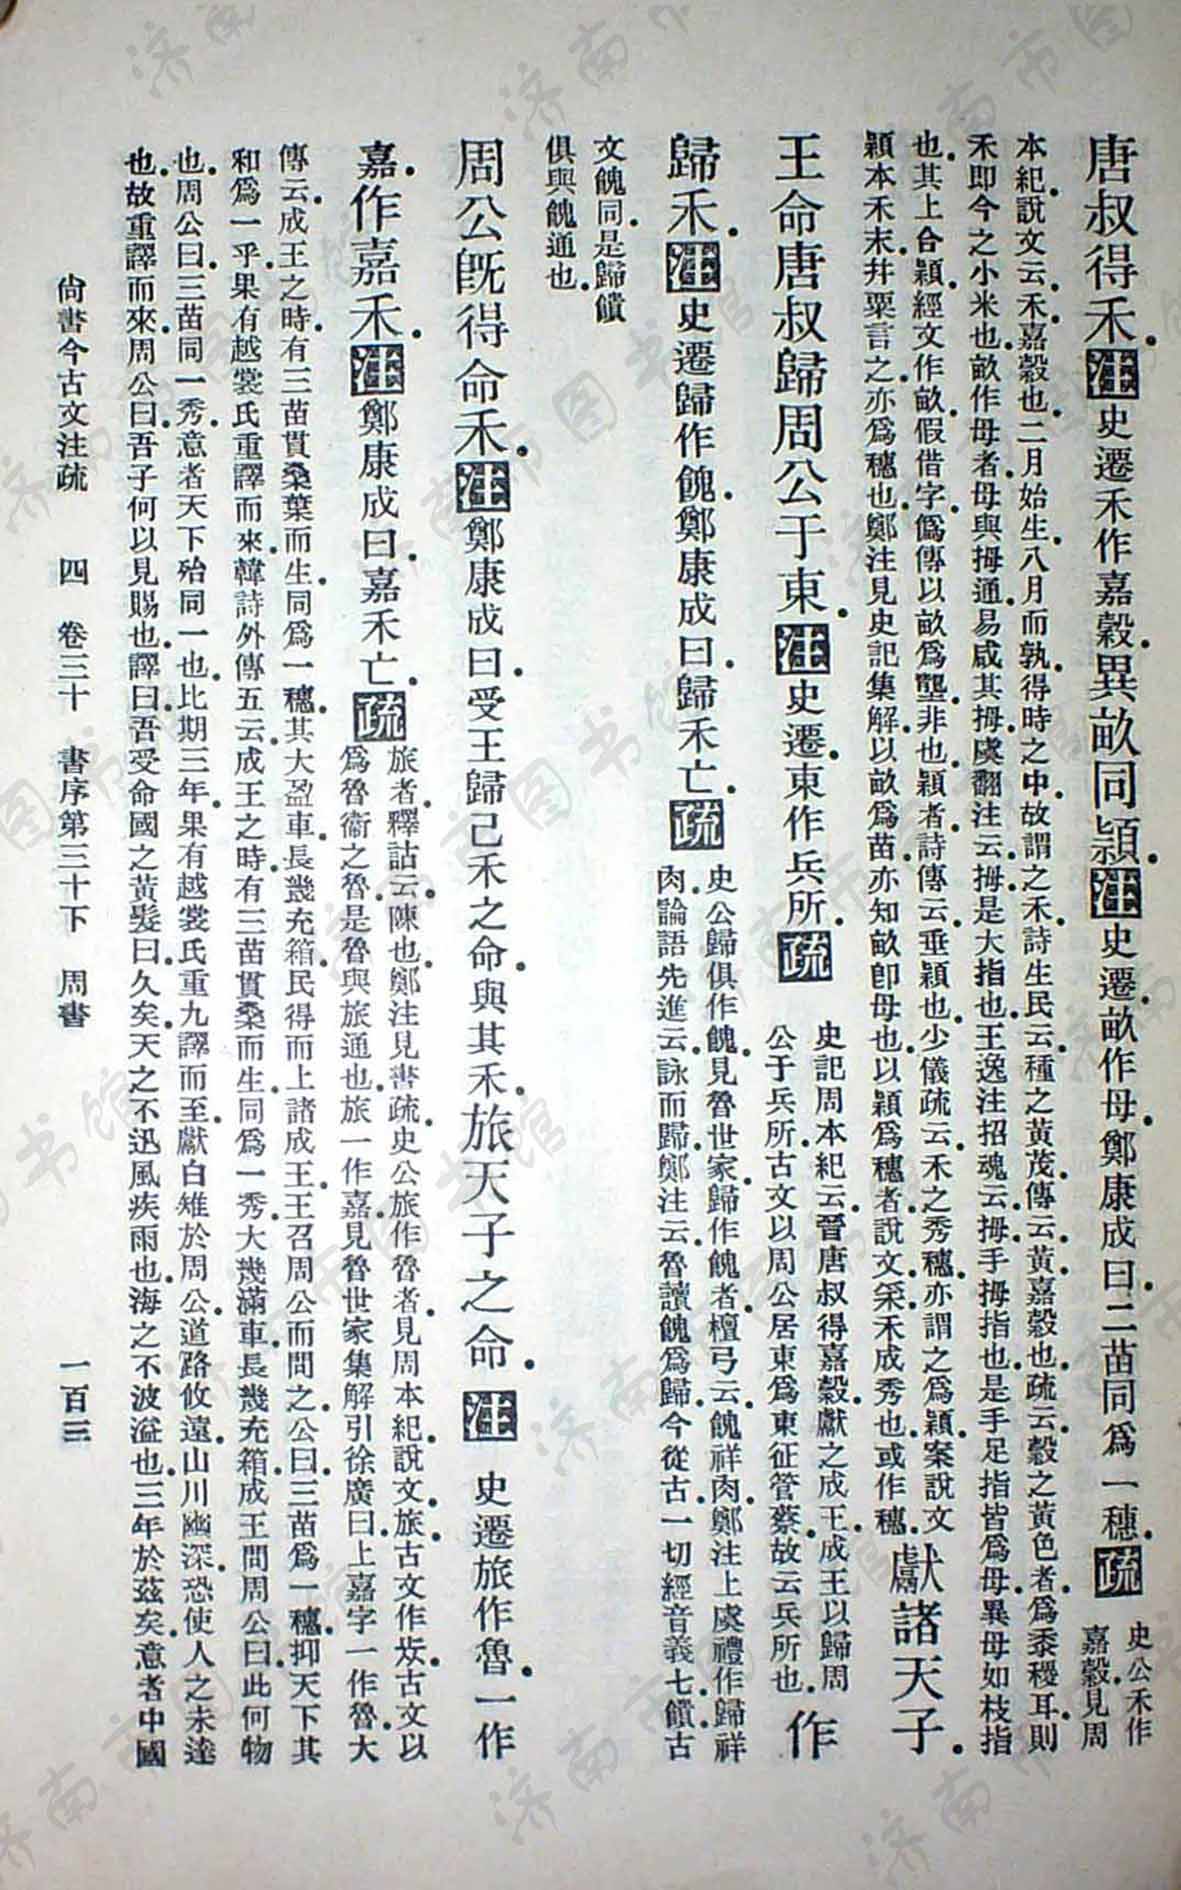 唐叔得禾。注史遷禾作嘉穀。異畝同潁。注史遷。畝作母。鄭康成曰。二苗同爲一穗。疏史公禾作
嘉穀。見周
本紀。說文云。禾。嘉穀也。二月始生。八月而孰。得時之中。故謂之禾。詩生民云。種之黃茂。傳云。黃。嘉穀也。疏云。穀之黃色者。爲黍稷耳。則
禾即今之小米也。畝作母者。母與拇通。易咸其拇。虞翻注云。拇。是大指也。王逸注招魂云。拇。手拇指也。是手足指皆爲母。異母如枝指
也。其上合穎。經文作畝。假借字。僞傳以畝爲壟。非也。穎者。詩傳云。垂穎也。少儀疏云。禾之秀穗。亦謂之爲穎。案說文
穎本禾末。幷粟言之。亦爲穗也。鄭注見史記集解。以畝爲苗。亦知畝卽母也。以穎爲穗者。說文。采。禾成秀也。或作穗。獻諸天子。
王命唐叔歸周公于東。注史遷。東作兵所。疏史記周本紀云。晉唐叔得嘉穀。獻之成王。成王以歸周
公于兵所。古文以周公居東爲東征管蔡。故云兵所也。作
歸禾。注史遷歸作餽。鄭康成曰。歸禾亡。疏史公歸俱作餽。見魯世家。歸作餽者。檀弓云。餽祥肉。鄭注上虞禮作歸祥
肉。論語先進云。詠而歸。鄭注云。魯讀餽爲歸。今從古。一切經音義七。饋。古
文餽同。是歸饋
俱與餽通也。
周公旣得命禾。注鄭康成曰。受王歸己禾之命。與其禾。旅天子之命。注史遷旅作魯。一作
嘉。作嘉禾。注鄭康成曰。嘉禾亡。疏旅者。釋詁云。陳也。鄭注見書疏。史公旅作魯者。見周本紀。說文。旅。古文作㫃。古文以
爲魯衞之魯。是魯與旅通也。旅一作嘉。見魯世家集解引徐廣曰。上嘉字一作魯。大
傳云。成王之時。有三苗貫桑葉而生。同爲一穗。其大盈車。長幾充箱。民得而上諸成王。王召周公而問之。公曰。三苗爲一穗。抑天下其
和爲一乎。果有越裳氏重譯而來。韓詩外傳五云。成王之時。有三苗貫桑而生。同爲一秀。大幾滿車。長幾充箱。成王問周公曰。此何物
也。周公曰。三苗同一秀。意者天下殆同一也。比期三年。果有越裳氏重九譯而至。獻白雉於周公。道路攸遠。山川幽深。恐使人之未達
也。故重譯而來。周公曰。吾子何以見賜也。譯曰。吾受命國之黃髮曰。久矣。天之不迅風疾雨也。海之不波溢也。三年於茲矣。意者中國
尙書今古文注疏 四 卷三十 書序第三十下 周書 一百三